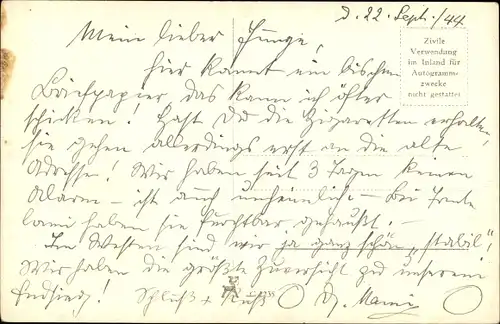 D. 22. Sept./44
Mein lieber Junge!
Zivile
Verwendung
im Inland für
Autogramm-
zwecke
nicht gestattet
hier kommt ein bischen
Briefpapier das kann ich öfter
schicken! Hast Du die Zigaretten erhalten,
sie gehen allerdings erst an die alte
Adresse! Wir haben seit 3 Tagen keinen
Alarm – ist auch unheimlich – Bei
haben sie furchtbar gehaust. –
Im Westen sind wir ja ganz schön „stabil"!
Wir haben die größte Zuversicht zu unserem
Endsieg! Schluß + Kuß D. Mami